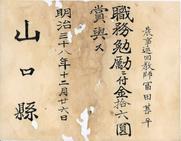 農事巡回教師 冨田甚平
職務勉勵ニ付金拾六圓
賞與ス
明治三十八年十二月廿六日
山口縣